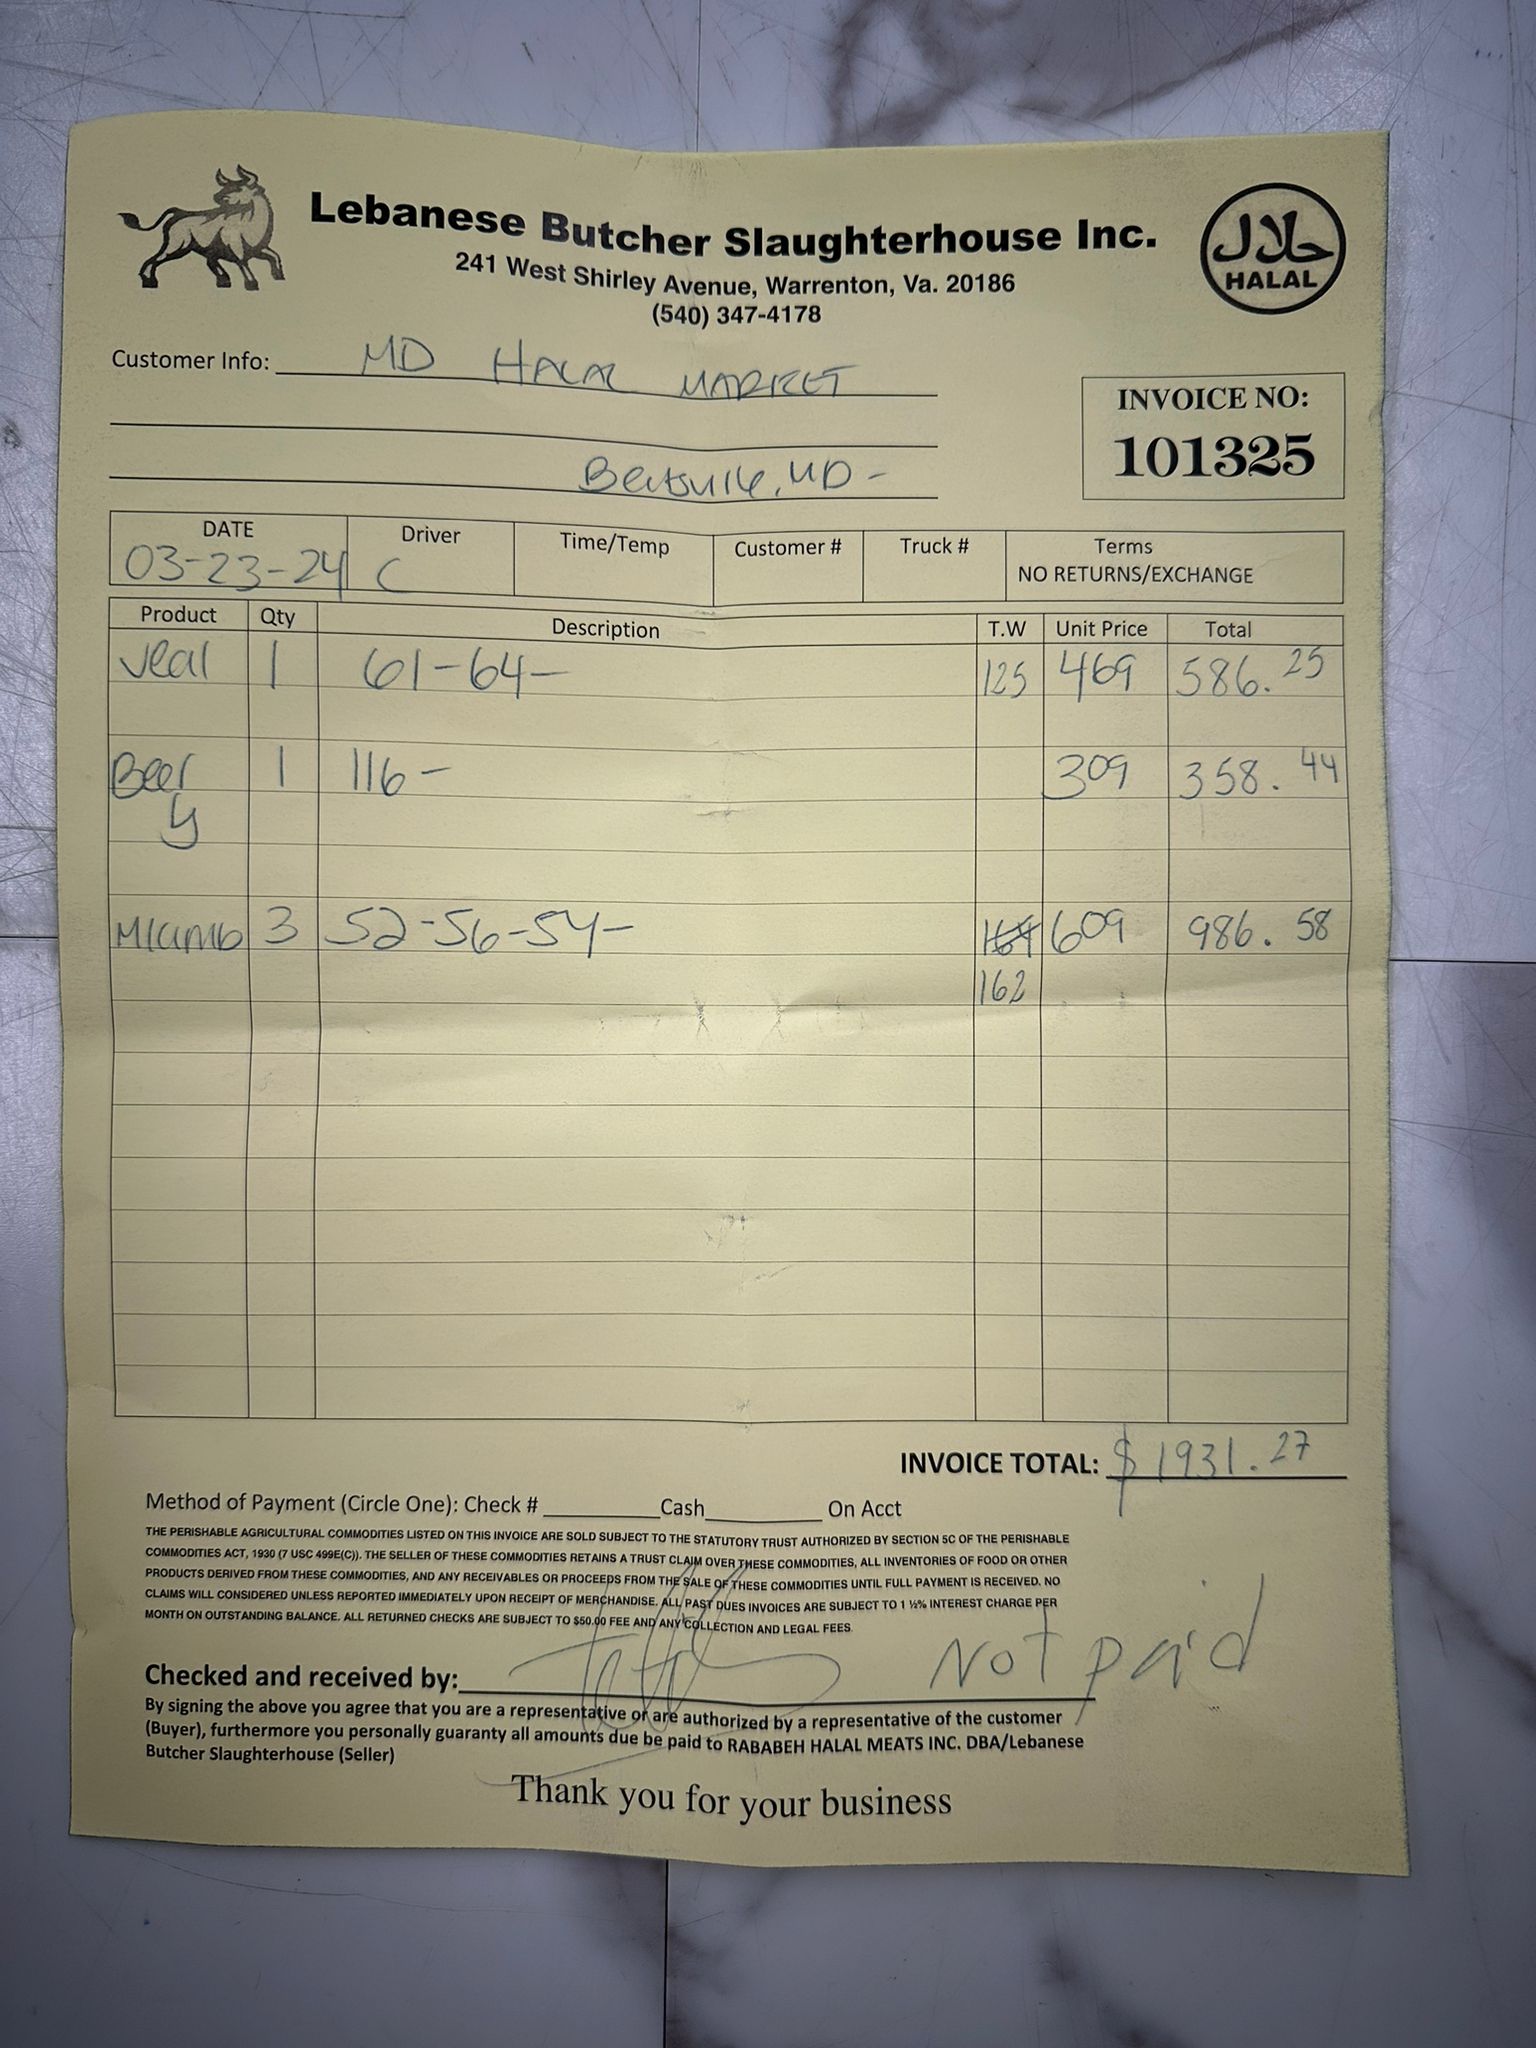 Lebanese Butcher Slaughterhouse Inc.
حلال
HALAL
241 West Shirley Avenue, Warrenton, Va. 20186
(540) 347-4178
Customer Info: MD HALAL MARKET
INVOICE NO:
101325
Beltsville, MD -
DATE Driver Time/Temp Customer # Truck # Terms
03-23-24 C NO RETURNS/EXCHANGE
Product Qty Description T.W Unit Price Total
Veal 1 61-64- 125 469 586.25
Beef 1 116- 309 358.44
y
Mlamb 3 52-56-54- 164 609 986.58
162
INVOICE TOTAL: $1931.27
Method of Payment (Circle One): Check # Cash On Acct
THE PERISHABLE AGRICULTURAL COMMODITIES LISTED ON THIS INVOICE ARE SOLD SUBJECT TO THE STATUTORY TRUST AUTHORIZED BY SECTION 5C OF THE PERISHABLE
COMMODITIES ACT, 1930 (7 USC 499E(C)). THE SELLER OF THESE COMMODITIES RETAINS A TRUST CLAIM OVER THESE COMMODITIES, ALL INVENTORIES OF FOOD OR OTHER
PRODUCTS DERIVED FROM THESE COMMODITIES, AND ANY RECEIVABLES OR PROCEEDS FROM THE SALE OF THESE COMMODITIES UNTIL FULL PAYMENT IS RECEIVED. NO
CLAIMS WILL CONSIDERED UNLESS REPORTED IMMEDIATELY UPON RECEIPT OF MERCHANDISE. ALL PAST DUES INVOICES ARE SUBJECT TO 1 ½% INTEREST CHARGE PER
MONTH ON OUTSTANDING BALANCE. ALL RETURNED CHECKS ARE SUBJECT TO $50.00 FEE AND ANY COLLECTION AND LEGAL FEES
Checked and received by: Not paid
By signing the above you agree that you are a representative or are authorized by a representative of the customer
(Buyer), furthermore you personally guaranty all amounts due be paid to RABABEH HALAL MEATS INC. DBA/Lebanese
Butcher Slaughterhouse (Seller)
Thank you for your business